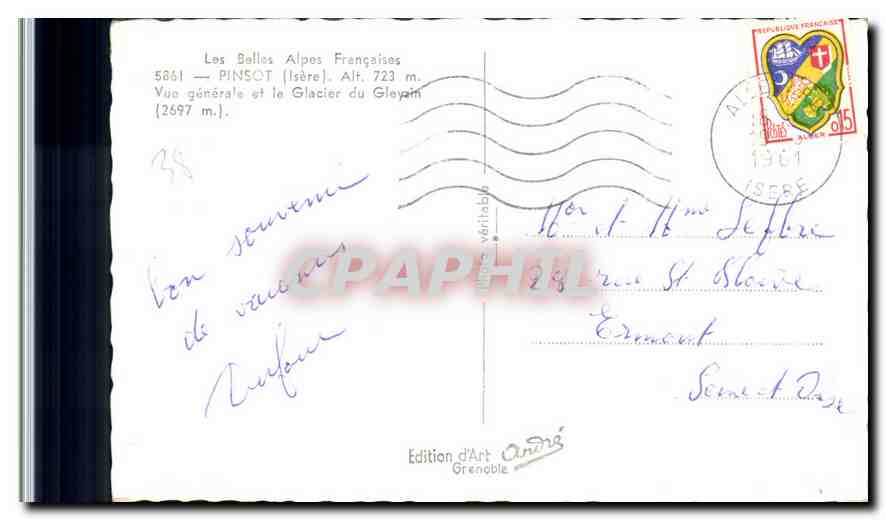 Les Belles Alpes Françaises
5861 — PINSOT (Isère). Alt. 723 m.
Vue générale et le Glacier du Gleyzin
(2697 m.).
38
bon souvenir
de vacances
Dufour
Photo véritable
Edition d'Art André
Grenoble
REPUBLIQUE FRANÇAISE
POSTES
0,15
ALGER
1961
ISERE
Mor et Mme Lefbre
28 rue St
Ermont
Seine et Oise
CPAPHIL